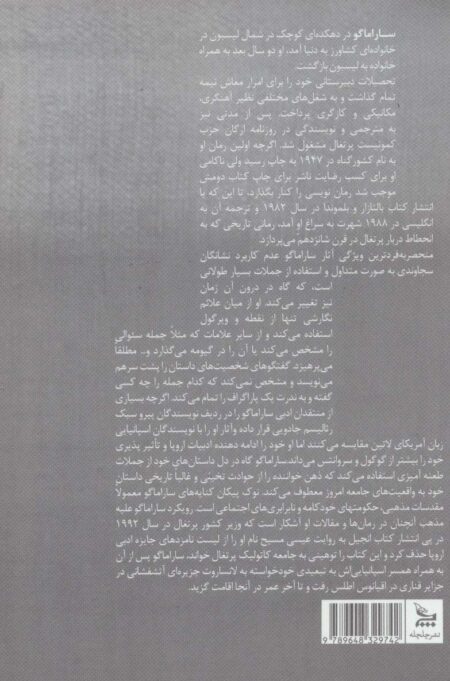 ساراماگو در دهکده‌ای کوچک در شمال لیسبون در
خانواده‌ای کشاورز به دنیا آمد، او دو سال بعد به همراه
خانواده به لیسبون بازگشت.
تحصلات دبیرستانی خود را برای امرار معاش نیمه
تمام گذاشت و به شغل‌های مختلفی نظیر آهنگری،
مکانیکی و کارگری پرداخت. پس از مدتی نیز
به مترجمی و نویسندگی در روزنامه ارگان حزب
کمونیست پرتغال مشغول شد. اگرچه اولین رمان او
به نام کشور گناه در ۱۹۴۷ به چاپ رسید ولی ناکامی
او برای کسب رضایت ناشر برای چاپ کتاب دومش
موجب شد رمان نویسی را کنار بگذارد، تا این که با
انتشار کتاب بالتازار و بلموندا در سال ۱۹۸۲ و ترجمه آن به
انگلیسی در ۱۹۸۸ شهرت به سراغ او آمد، رمانی تاریخی که به
انحطاط دربار پرتغال در قرن شانزدهم می‌پردازد.
منحصربه‌فردترین ویژگی آثار ساراماگو عدم کاربرد نشانگان
سجاوندی به صورت متداول و استفاده از جملات بسیار طولانی
است، که گاه در درون آن زمان
نیز تغییر می‌کند. او از میان علائم
نگارشی تنها از نقطه و ویرگول
استفاده می‌کند و از سایر علامات که مثلاً جمله سئوالی
را مشخص می‌کند یا آن را در گیومه می‌گذارد و... مطلقاً
می‌پرهیزد. گفتگوهای شخصیت‌های داستان را پشت سرهم
می‌نویسد و مشخص نمی‌کند که کدام جمله را چه کسی
گفته و به ندرت یک پاراگراف را تمام می‌کند. اگرچه بسیاری
از منتقدان ادبی ساراماگو را در ردیف نویسندگان پیرو سبک
رئالیسم جادویی قرار داده و آثار او را با نویسندگان اسپانیایی
زبان آمریکای لاتین مقایسه می‌کنند اما او خود را ادامه دهنده ادبیات اروپا و تأثیر پذیری
خود را بیشتر از گوگول و سروانتس می‌داند.ساراماگو گاه در دل داستان‌های خود از جملات
طعنه آمیزی استفاده می‌کند که ذهن خواننده را از حوادث تخیلی و غالباً تاریخی داستان
خود به واقعیت‌های جامعه امروز معطوف می‌کند. نوک پیکان کنایه‌های ساراماگو معمولا
مقدسات مذهبی، حکومتهای خودکامه و نابرابری‌های اجتماعی است. رویکرد ساراماگو علیه
مذهب آنچنان در رمان‌ها و مقالات او آشکار است که وزیر کشور پرتغال در سال ۱۹۹۲
در پی انتشار کتاب انجیل به روایت عیسی مسیح نام او را از لیست نامزدهای جایزه ادبی
اروپا حذف کرد و این کتاب را توهینی به جامعه کاتولیک پرتغال خواند. ساراماگو پس از آن
به همراه همسر اسپانیایی‌اش به تبعیدی خودخواسته به لانساروت جزیره‌ای آتشفشانی در
جزایر قناری در اقیانوس اطلس رفت و تا آخر عمر در آنجا اقامت گزید.
نشر چلچله
9 789648 329742